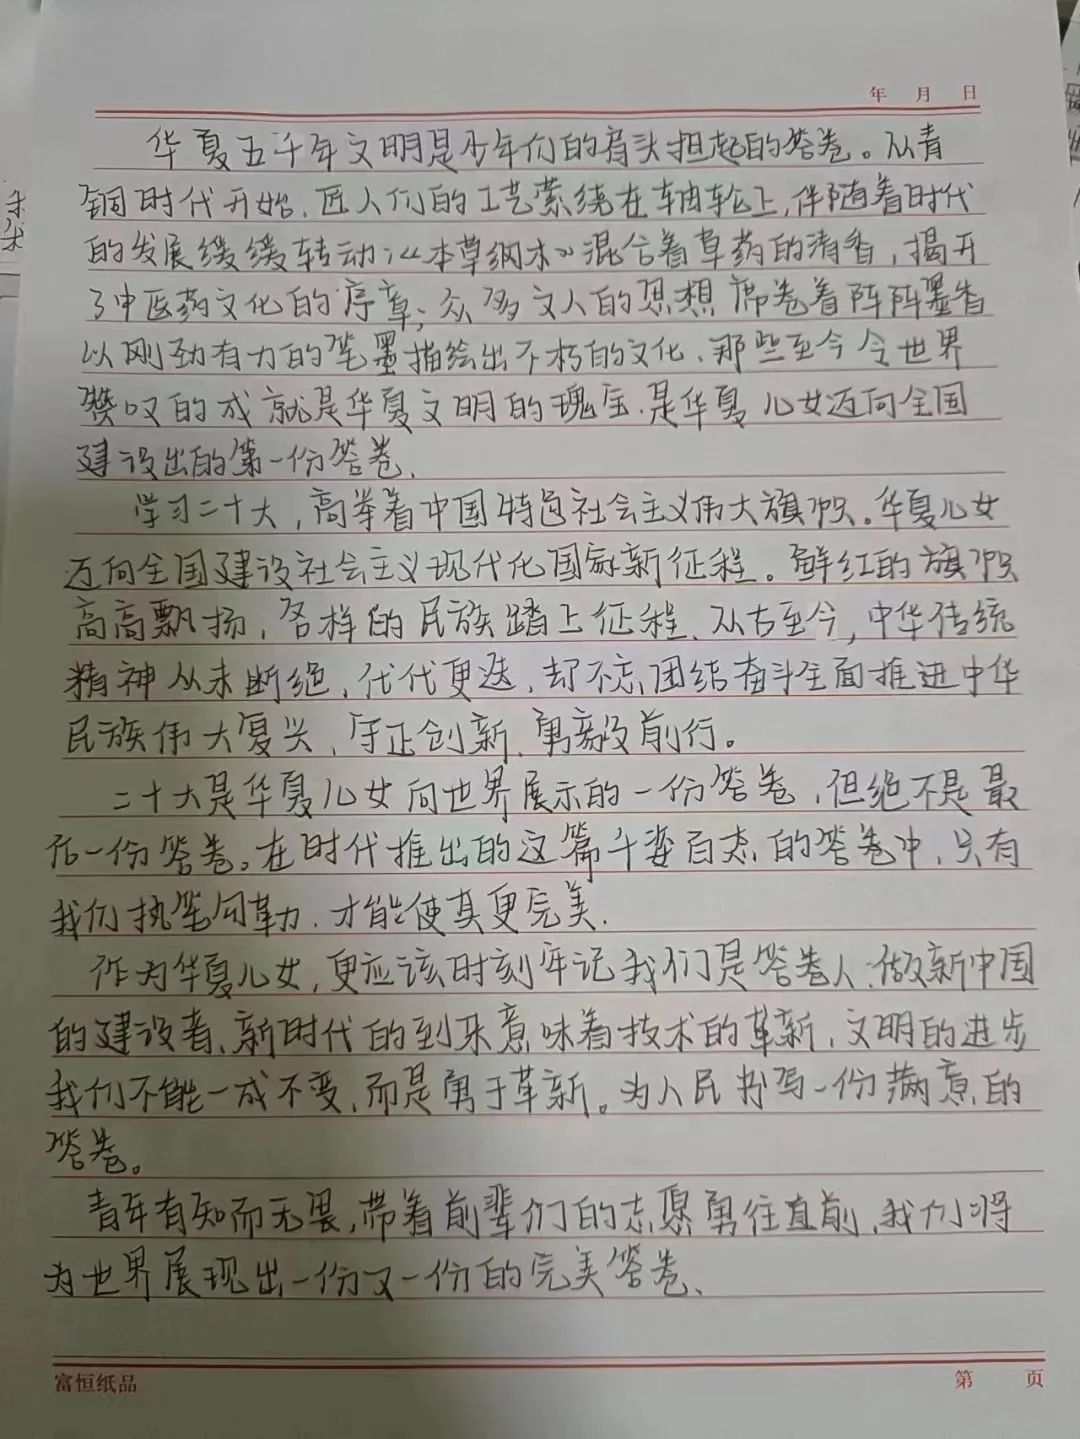 年 月 日
华夏五千年文明是少年们的肩头担起的答卷。从青
铜时代开始，匠人们的工艺萦绕在轴轮上，伴随着时代
的发展缓缓转动；《本草纲木》混合着草药的清香，揭开
了中医药文化的序章；众多文人的思想席卷着阵阵墨香
以刚劲有力的笔墨描绘出不朽的文化、那些至今令世界
赞叹的成就是华夏文明的瑰宝.是华夏儿女迈向全国
建设出的第一份答卷.
学习二十大，高举着中国特色社会主义伟大旗帜。华夏儿女
迈向全国建设社会主义现代化国家新征程。鲜红的旗帜
高高飘扬，各样的民族踏上征程、从古至今，中华传统
精神从未断绝，代代更迭，却不忘团结奋斗全面推进中华
民族伟大复兴，守正创新、勇毅前行。
二十大是华夏儿女向世界展示的一份答卷，但绝不是最
后一份答卷。在时代推出的这篇千姿百态的答卷中，只有
我们执笔同力.才能使其更完美.
作为华夏儿女，更应该时刻牢记我们是答卷人.做新中国
的建设者、新时代的到来意味着技术的革新，文明的进步
我们不能一成不变、而是勇于革新。为人民抒写一份满意的
答卷。
青年有知而无畏，带着前辈们的志愿勇往直前、我们将
为世界展现出一份又一份的完美答卷、
富恒纸品
第 页